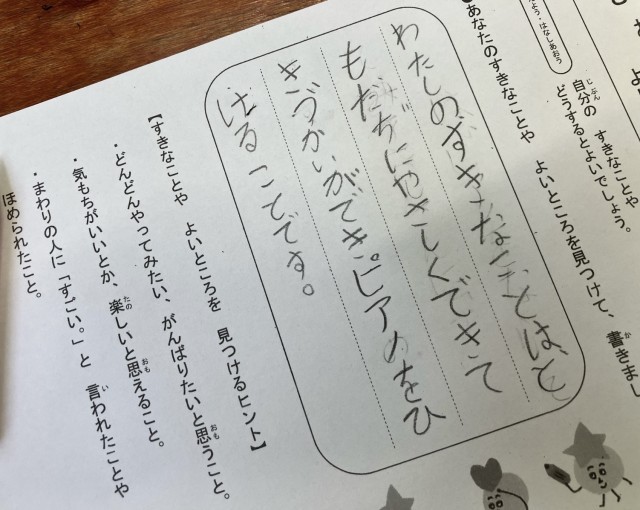 よう・はなしあおう
自分の　すきなことや
じぶん
どうするとよいでしょう。
●あなたのすきなことや　よいところを見つけて、書きまし
か
わたしのすきなことは、と
もだちにやさしくできて
きづかいができ。ピアノをひ
けることです。
【すきなことや　よいところを　見つけるヒント】
・どんどんやってみたい、がんばりたいと思うこと。
おも
・気もちがいいとか、楽しいと思えること。
たの
おも
・まわりの人に「すごい。」と　言われたことや
い
ほめられたこと。